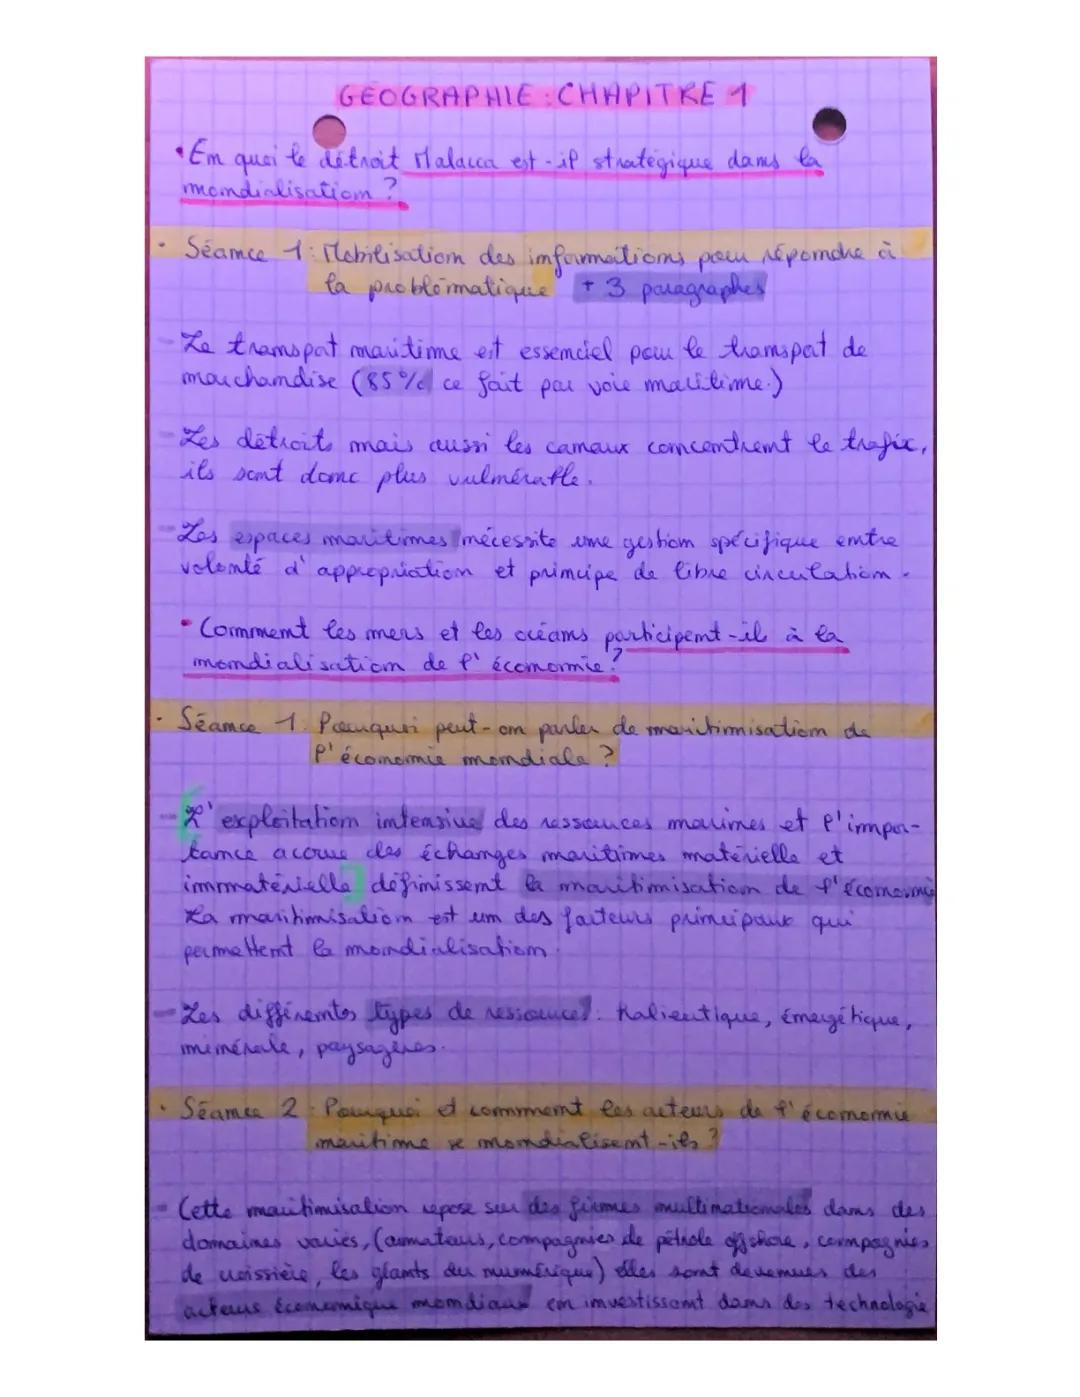 GEOGRAPHIE : CHAPITRE 1
• En quoi le détroit Malacca est-il stratégique dans la
mondialisation ?
• Séance 1 : Mobilisation des informations pour répondre à
la problématique + 3 paragraphes
- Le transpot maritime est essenciel pour le transpot de
marchandise (85% ce fait par voie maritime.)
- Les détroits mais aussi les canaux concentrent le trafic,
ils sont donc plus vulnérable.
- Les espaces maritimes nécessite une gestion spécifique entre
volonté d'appropriation et principe de libre circulation.
• Comment les mers et les océans participent-il à la
mondialisation de l'économie ?
• Séance 1 : Pourquoi peut-on parler de maritimisation de
l'économie mondiale ?
- [L'exploitation intensive des ressources marines et l'impor-
tance accrue des échanges maritimes matérielle et
immatérielle] définissent la maritimisation de l'économie
La maritimisation est un des facteurs principaux qui
permettent la mondialisation.
- Les différentes types de ressources : halieutique, énergétique,
minérale, paysagères.
• Séance 2 : Pourquoi et comment les acteurs de l'économie
maritime se mondialisent-ils ?
- Cette maritimisation repose sur des firmes multinationales dans des
domaines variés, (armateurs, compagnies de pétrole offshore, compagnies
de croissière, les géants du numérique) elles sont devenues des
acteurs économique mondiaux en investissant dans des technologie